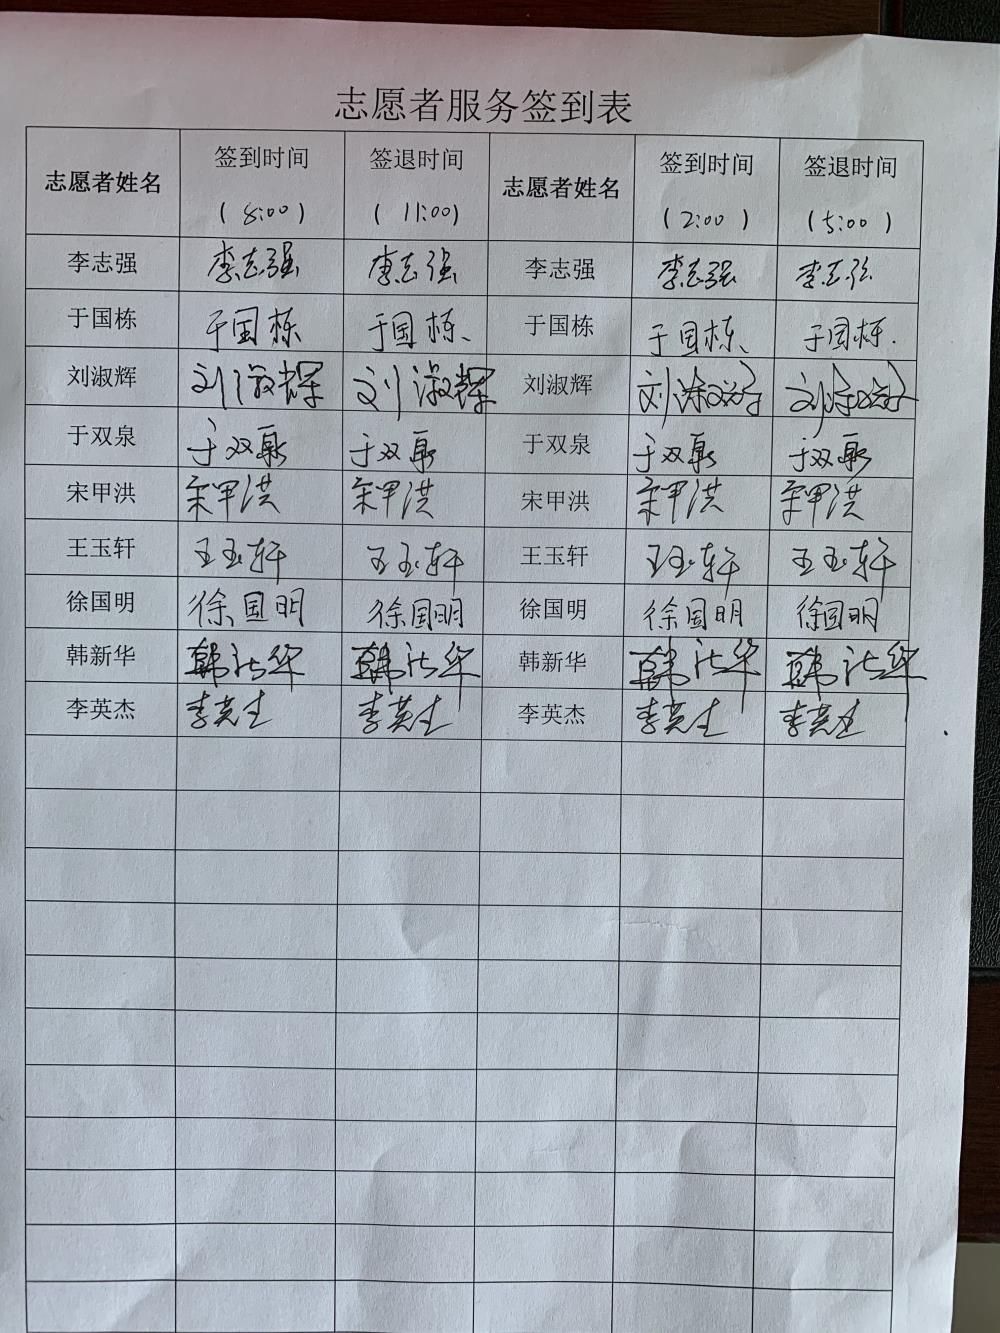 志愿者服务签到表
志愿者姓名 签到时间 (8:00) 签退时间 (11:00) 志愿者姓名 签到时间 (2:00) 签退时间 (5:00)
李志强 李志强 李志强 李志强 李志强 李志强
于国栋 于国栋 于国栋、 于国栋 于国栋、 于国栋.
刘淑辉 刘淑辉 刘淑辉 刘淑辉
于双泉 于双泉 于双泉 于双泉 于双泉 于双泉
宋甲洪 宋甲洪 宋甲洪 宋甲洪 宋甲洪 宋甲洪
王玉轩 王玉轩 王玉轩 王玉轩 王玉轩 王玉轩
徐国明 徐国明 徐国明 徐国明 徐国明 徐国明
韩新华 韩新华 韩新华 韩新华 韩新华 韩新华
李英杰 李英杰 李英杰 李英杰 李英杰 李英杰